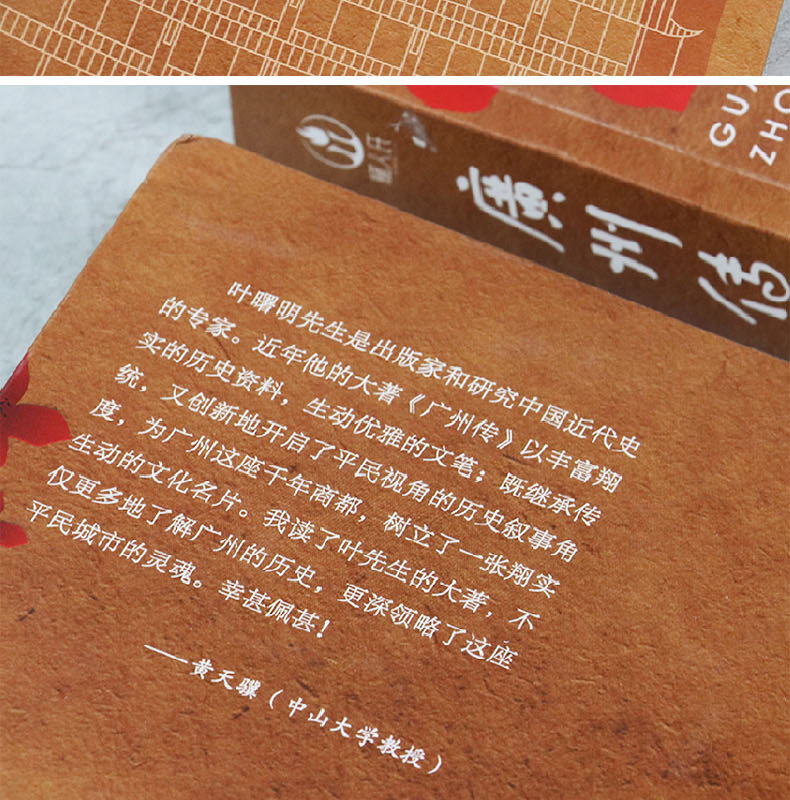 GUA
ZHO
廣州传
叶曙明先生是出版家和研究中国近代史
的专家。近年他的大著《广州传》以丰富翔
实的历史资料，生动优雅的文笔；既继承传
统，又创新地开启了平民视角的历史叙事角
度，为广州这座千年商都，树立了一张翔实
生动的文化名片。我读了叶先生的大著，不
仅更多地了解广州的历史，更深领略了这座
平民城市的灵魂。幸甚佩甚！
——黄天骥（中山大学教授）